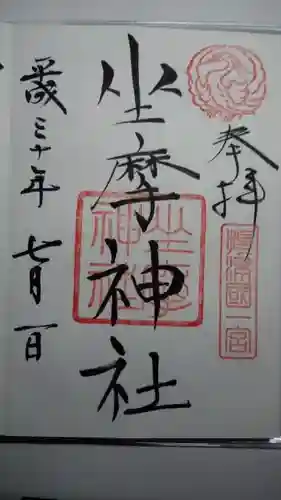 奉拝
摂津国一宮
坐摩神社
坐摩神社
平成三十年七月一日